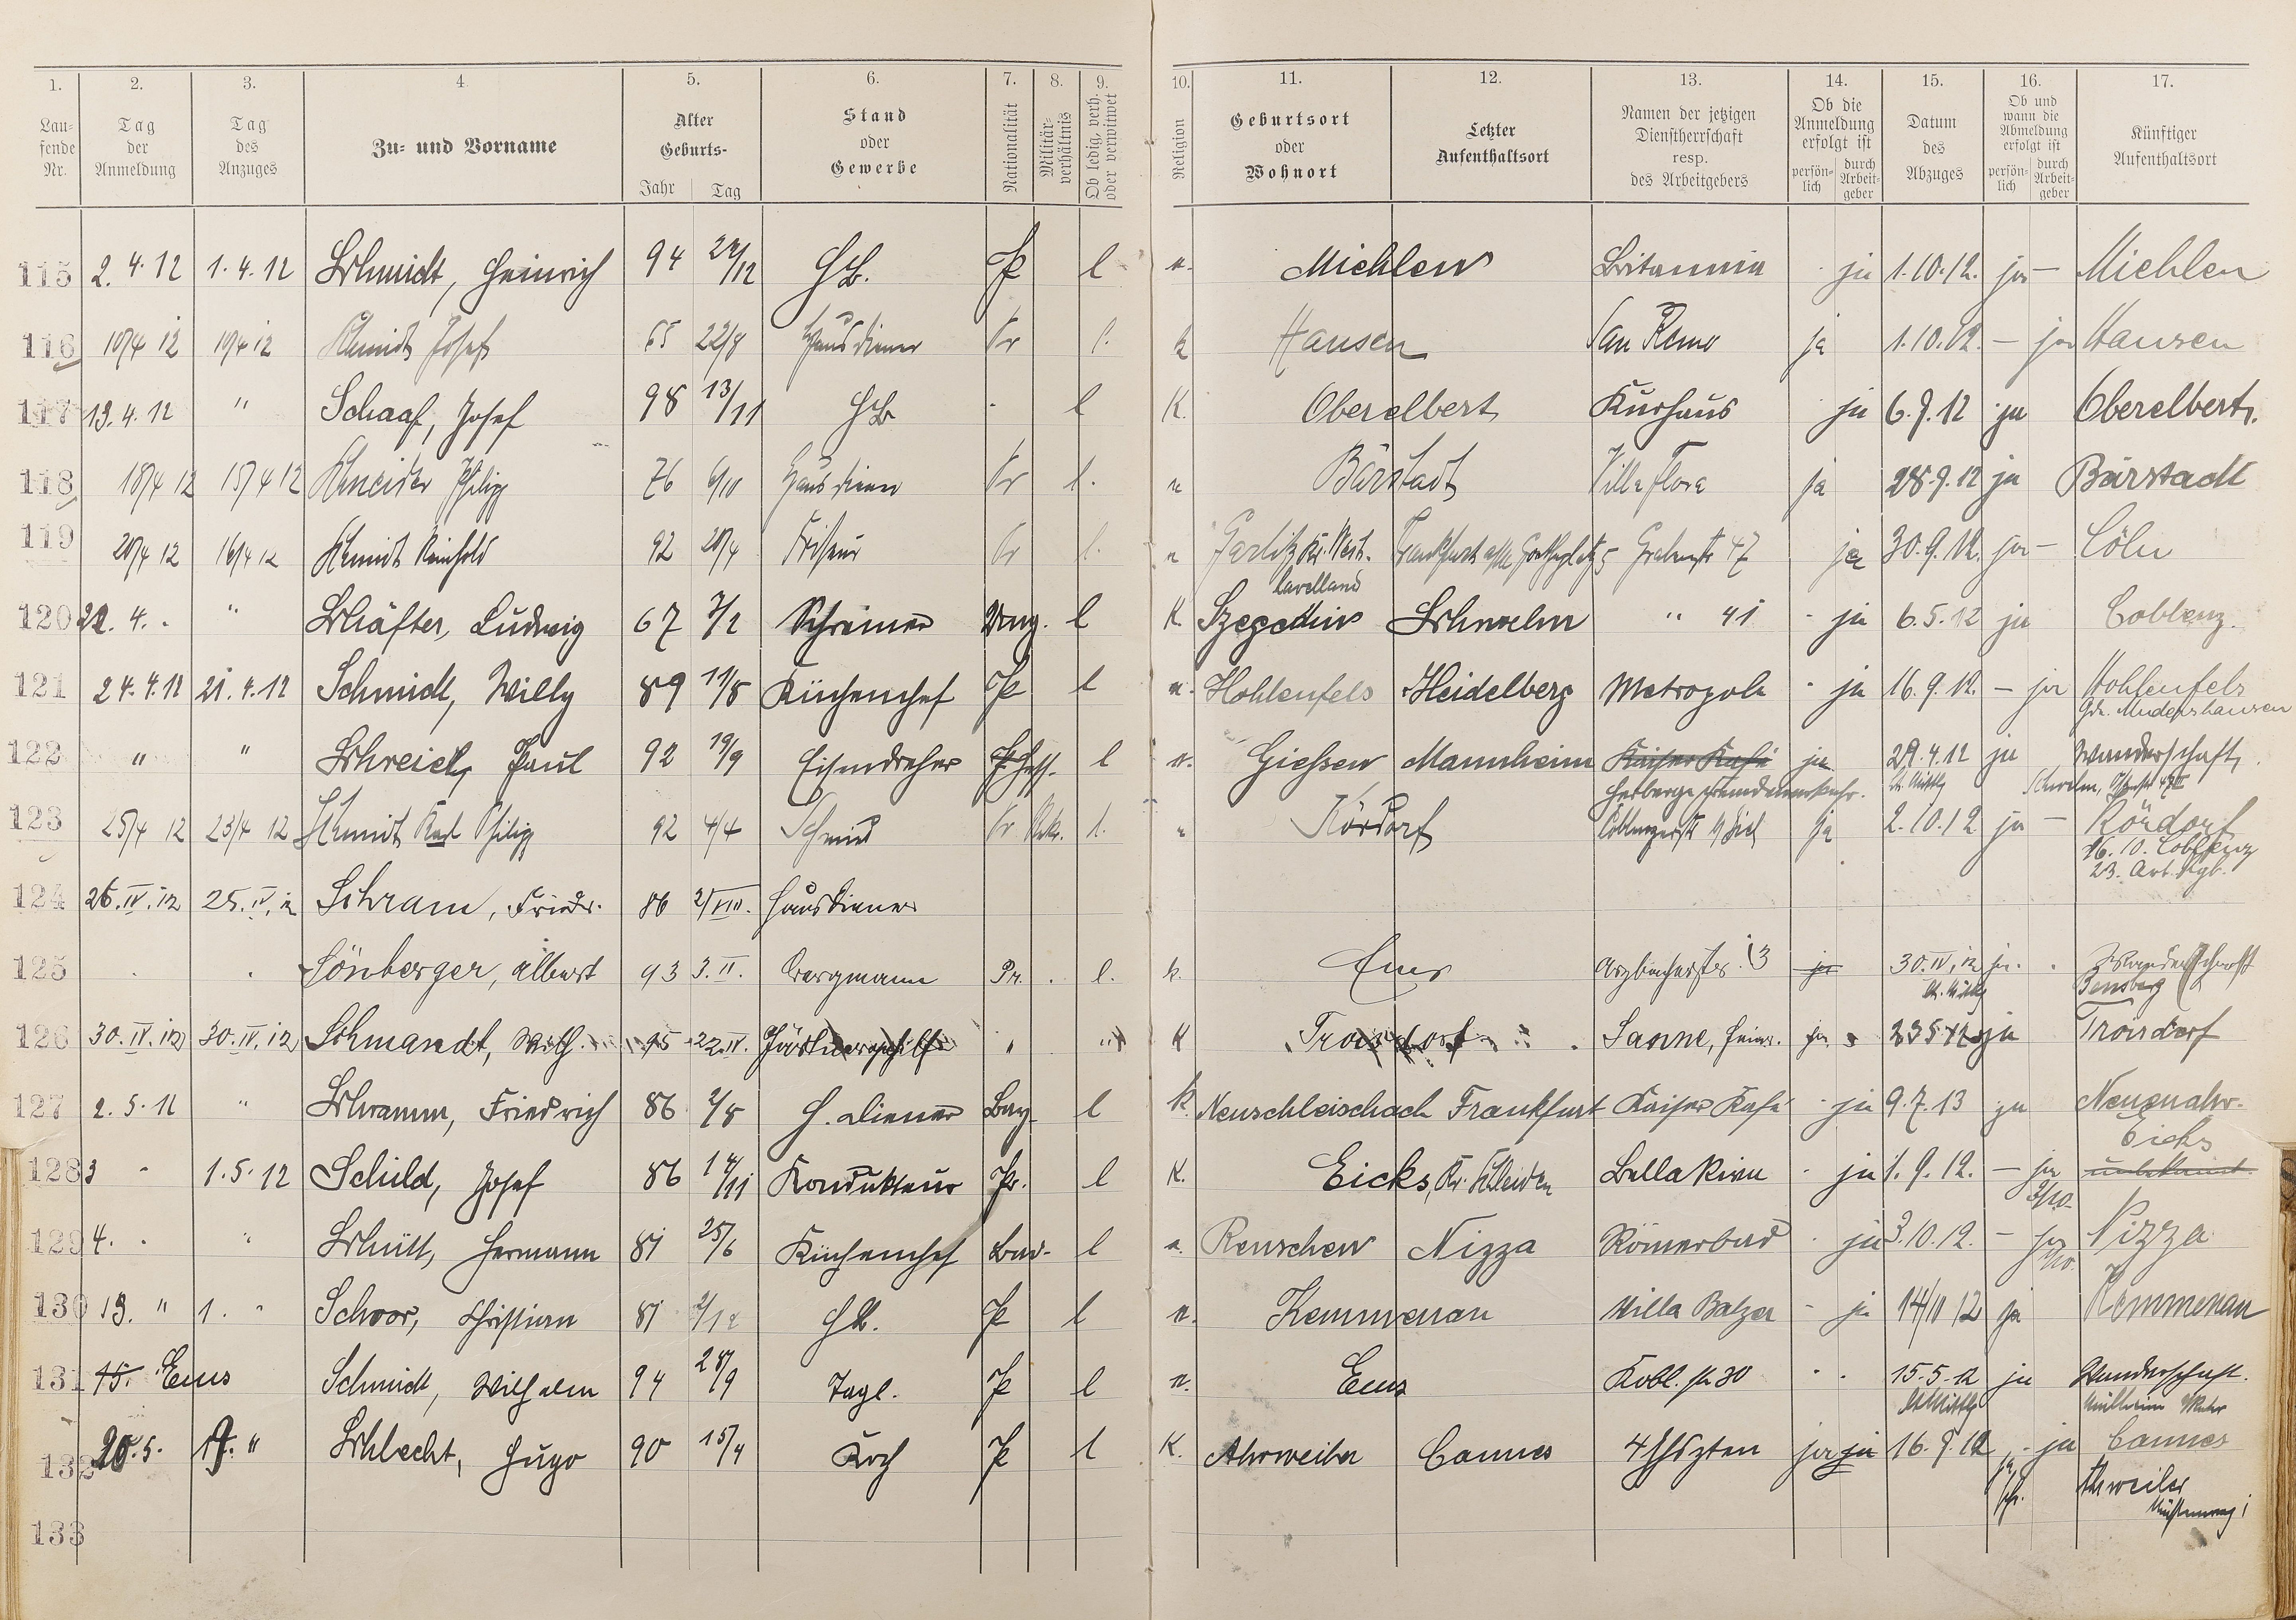 1. 2. 3. 4 5. 6. 7. 8. 9. 10. 11. 12. 13. 14. 15. 16. 17.
Lau-
fende
Nr.
Tag
der
Anmeldung
Tag
des
Anzuges
Zu- und Vorname
Alter
Geburts-
Jahr Tag
Stand
oder
Gewerbe
Nationalität
Militär-
verhältnis
Ob ledig, verh.
oder verwitwet
Religion
Geburtsort
oder
Wohnort
Letzter
Aufenthaltsort
Namen der jetzigen
Dienstherrschaft
resp.
des Arbeitgebers
Ob die
Anmeldung
erfolgt ist
persön-
lich
durch
Arbeit-
geber
Datum
des
Abzuges
Ob und
wann die
Abmeldung
erfolgt ist
persön-
lich
durch
Arbeit-
geber
Künftiger
Aufenthaltsort
115 2.4.12 1.4.12 Schmidt, Heinrich 94 HB. P l Miehlen Britannia ja 1.10.12. ja — Miehlen
116 10/4 12 10/4 12 Schmidt Josef 65 22/8 Hausdiener Pr l. k Hausen San Remo ja 1.10.12. — ja Hausen
117 13.4.12 " Schaaf, Josef 98 13/11 HB l K. Oberelbert Kurhaus ja 6.9.12 ja Oberelbert.
118 18/4 12 15/4 12 Schneider Philipp 76 6/10 Hausdiener Pr l. Bärstadt Villa Flora ja 28.9.12 ja Bärstadt
119 20/4 12 16/4 12 Schmidt Reinhold 92 20/4 Friseur Pr l. Garlitz Kr. West- Frankfurt a/M Goetheplatz 5 Grabenstr 47 ja 30.9.12. ja — Cöln
havelland
120 22.4. " Schäfter, Ludwig 67 7/2 Schreiner Ung. l K Szegedin Schwelm " 41 ja 6.5.12 ja Coblenz.
121 24.4.12 21.4.12 Schmidt, Willy 89 11/8 Küchenchef P l Hohlenfels Heidelberg Metropole ja 16.9.12. — ja Hohlenfels
122 " " Schreich, Paul 92 19/9 Eisendreher Hess. l Giessen Mannheim Kaiser Kafé ja 29.4.12 ja Wanderschaft
Herberge
123 25/4 12 23/4 12 Schmidt Karl Philipp 92 4/4 Schmied Pr l. Kördorf Coblenzerstr ja 2.10.12 ja — Kördorf
16.10. Coblenz
23. Art. Rgt.
124 26.IV.12 25.IV.12 Schram, Friedr. 86 2/VIII. Hausdiener
125 Sönberger, Albert 93 3.II. Bergmann Pr. l. k. Ems Arzbacherstr. 13 ja 30.IV.12 ja. Wanderschaft
Bensberg
126 30.IV.12 30.IV.12 Schmandt, Wilh. 95 22.IV. Gärtnergehilfe " " K Troisdorf Sanne, Heinr. ja 23 5 12 ja Troisdorf
127 2.5.12 " Schramm, Friedrich 86 2/8 H. Diener Bay. l K Neuschleischach Frankfurt Kaiser Kafé ja 9.7.13 ja Neuenahr.
Eicks
128 3 1.5.12 Schild, Josef 86 14/11 Kondukteur Pr. l K. Eicks, Kr. Schleiden Bella Riva ja 1.9.12. — ja unbekannt
129 4. " Schütt, Hermann 81 25/6 Küchenchef Bad. l Renschen Nizza Römerbad ja 3.10.12. — ja Nizza
130 13. " 1. " Schoor, Christian 81 2/12 HB. P l Kemmenau Villa Balzer ja 14/10 12 ja Kemmenau
131 15. Ems Schmidt, Wilhelm 94 28/9 Tagl. P l Ems Kobl. str 30 15.5.12 ja Wanderschaft.
Mülheim Ruhr
132 20.5. Schlecht, Hugo 90 15/4 Koch P l K. Ahrweiler Cannes 4 Jhszten ja ja 16.9.12 ja Cannes
Ahrweiler
133